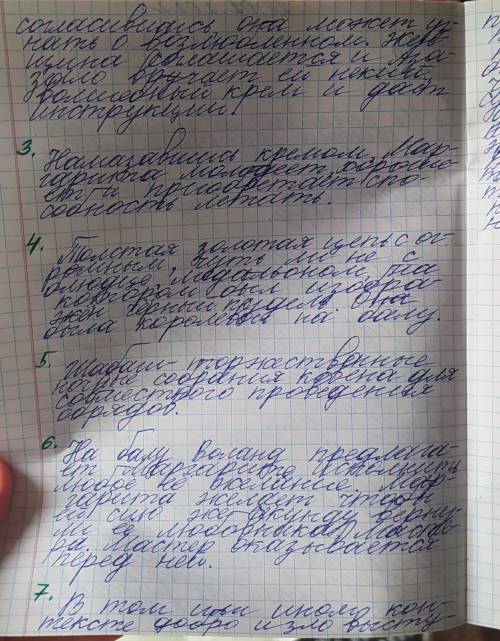 согласившись она может уз-
нать о возлюбленном. Жен-
щина соглашается и Аза-
зелло вручает ей некий
волшебный крем и даёт
инструкции.
3.
Намазавшись кремом, Мар-
гарита молодеет, хорошеет
и приобретает спо-
собность летать.
4.
Толстая золотая цепь с ог-
ромным, чуть ли не с
блюдце, медальоном, на
котором был изобра-
жен чёрный пудель. Она
была королевой на балу.
5. Шабаш- торжественные
ночные собрания ковена для
совместного проведения
обрядов.
6.
На балу Воланд предлага-
ет Маргарите исполнить
любое её желание. Мар-
гарита желает чтобы
ей сию же секунду верну-
ли её любовника, Масте-
ра. Мастер оказывается
перед ней.
7.
В том или ином кон-
тексте добро и зло высту-